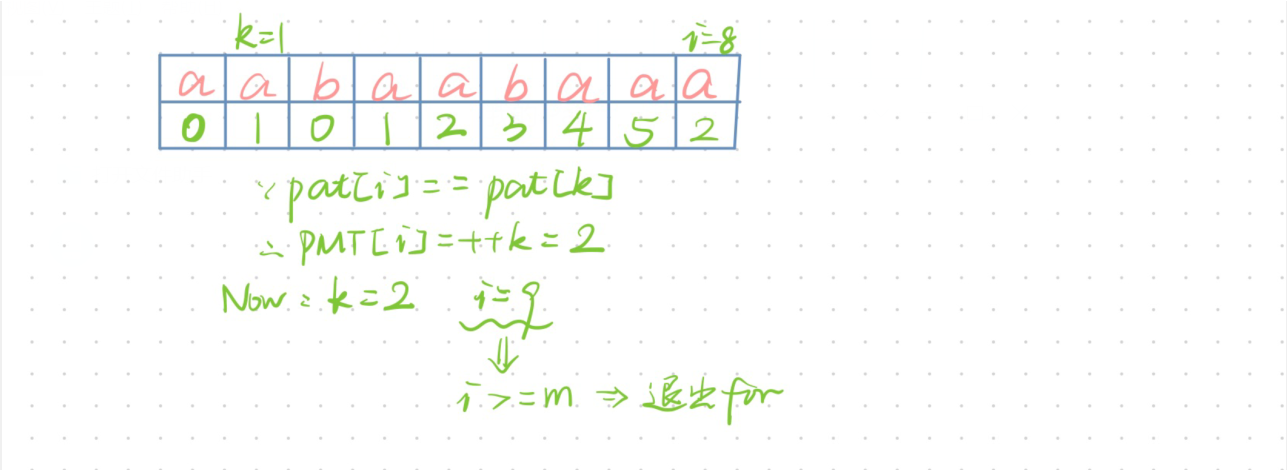 k=1 i=8
a a b a a b a a a
0 1 0 1 2 3 4 5 2
∵ pat[i] == pat[k]
∴ PMT[i] = ++k = 2
Now: k=2 i=9
⇓
i >= m ⇒ 退出 for